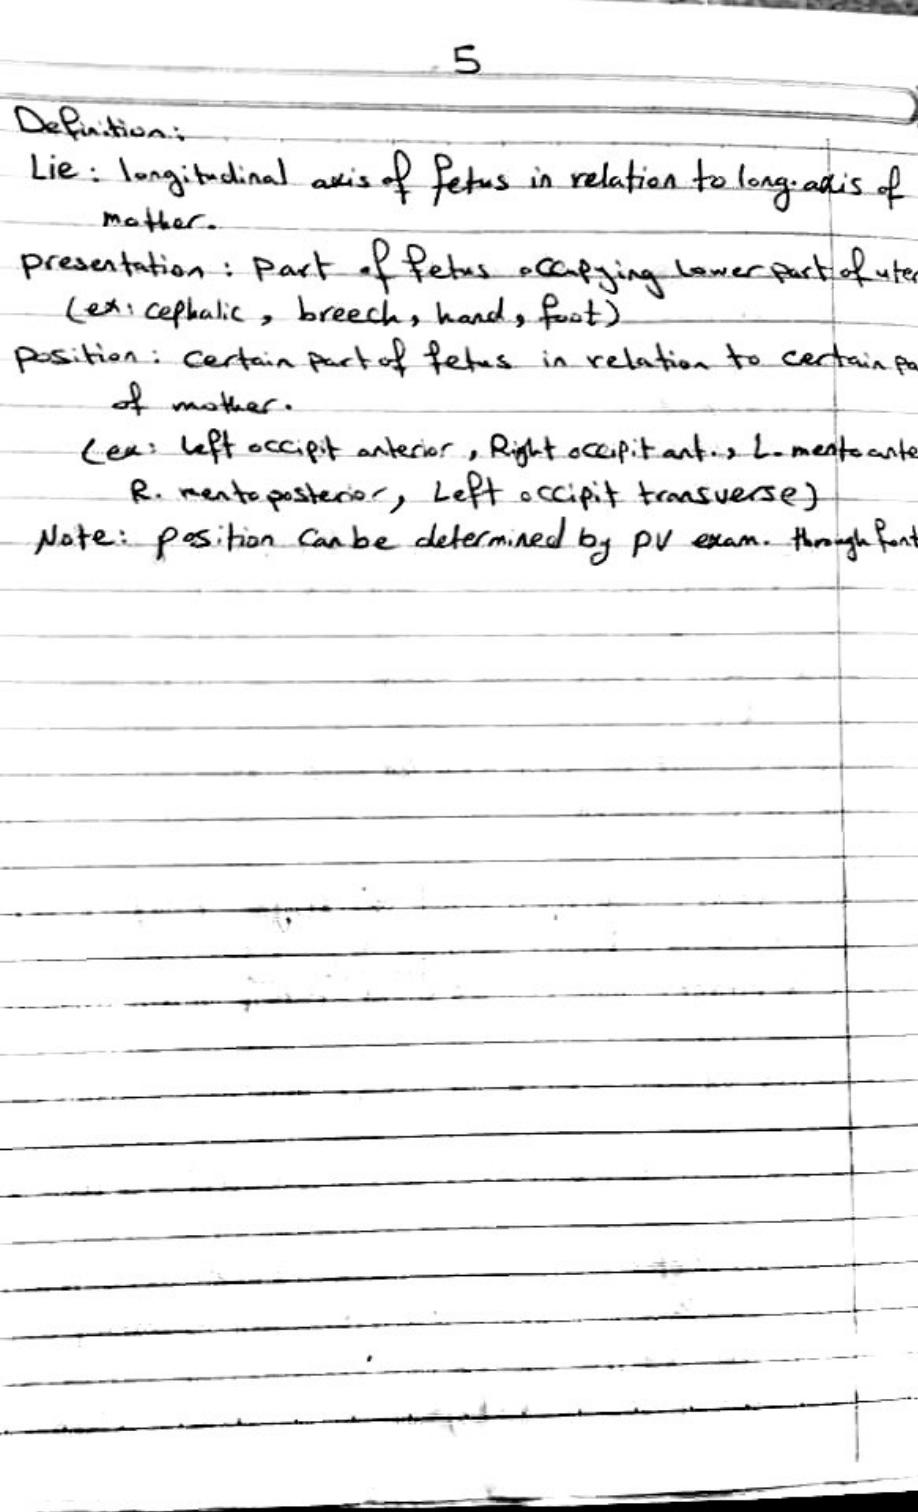 5
Definition:
Lie: longitudinal axis of fetus in relation to long. axis of
mother.
presentation: part of fetus occupying lower part of uter
(ex: cephalic, breech, hand, foot)
position: certain part of fetus in relation to certain pa
of mother.
(ex: left occipit anterior, Right occipit ant., L. mento ante
R. mento posterior, Left occipit transverse)
Note: position can be determined by PV exam. through font